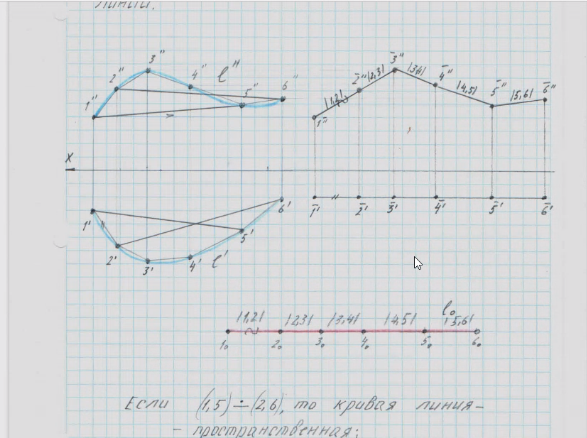 линий.
1'' 2'' 3'' 4'' l'' 5'' 6''
1̄'' 2̄'' 3̄'' 4̄'' 5̄'' 6̄''
|1,2| |2,3| |3,4| |4,5| |5,6|
X
1' 2' 3' 4' l' 5' 6'
1̄' 2̄' 3̄' 4̄' 5̄' 6̄'
|1,2| |2,3| |3,4| |4,5| l₀ |5,6|
1₀ 2₀ 3₀ 4₀ 5₀ 6₀
Если (1,5) ∸ (2,6), то кривая линия-
- пространственная;